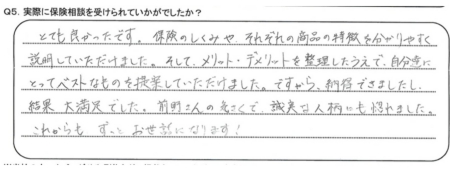 Q5. 実際に保険相談を受けられていかがでしたか?
とても良かったです。保険のしくみや、それぞれの商品の特徴を分かりやすく
説明していただけました。そして、メリット・デメリットを整理したうえで、自分達に
とってベストなものを提案していただけました。ですから、納得できましたし、
結果、大満足でした。前野さんの気さくで、誠実な人柄にも惚れました。
これからも ずっと お世話になります!